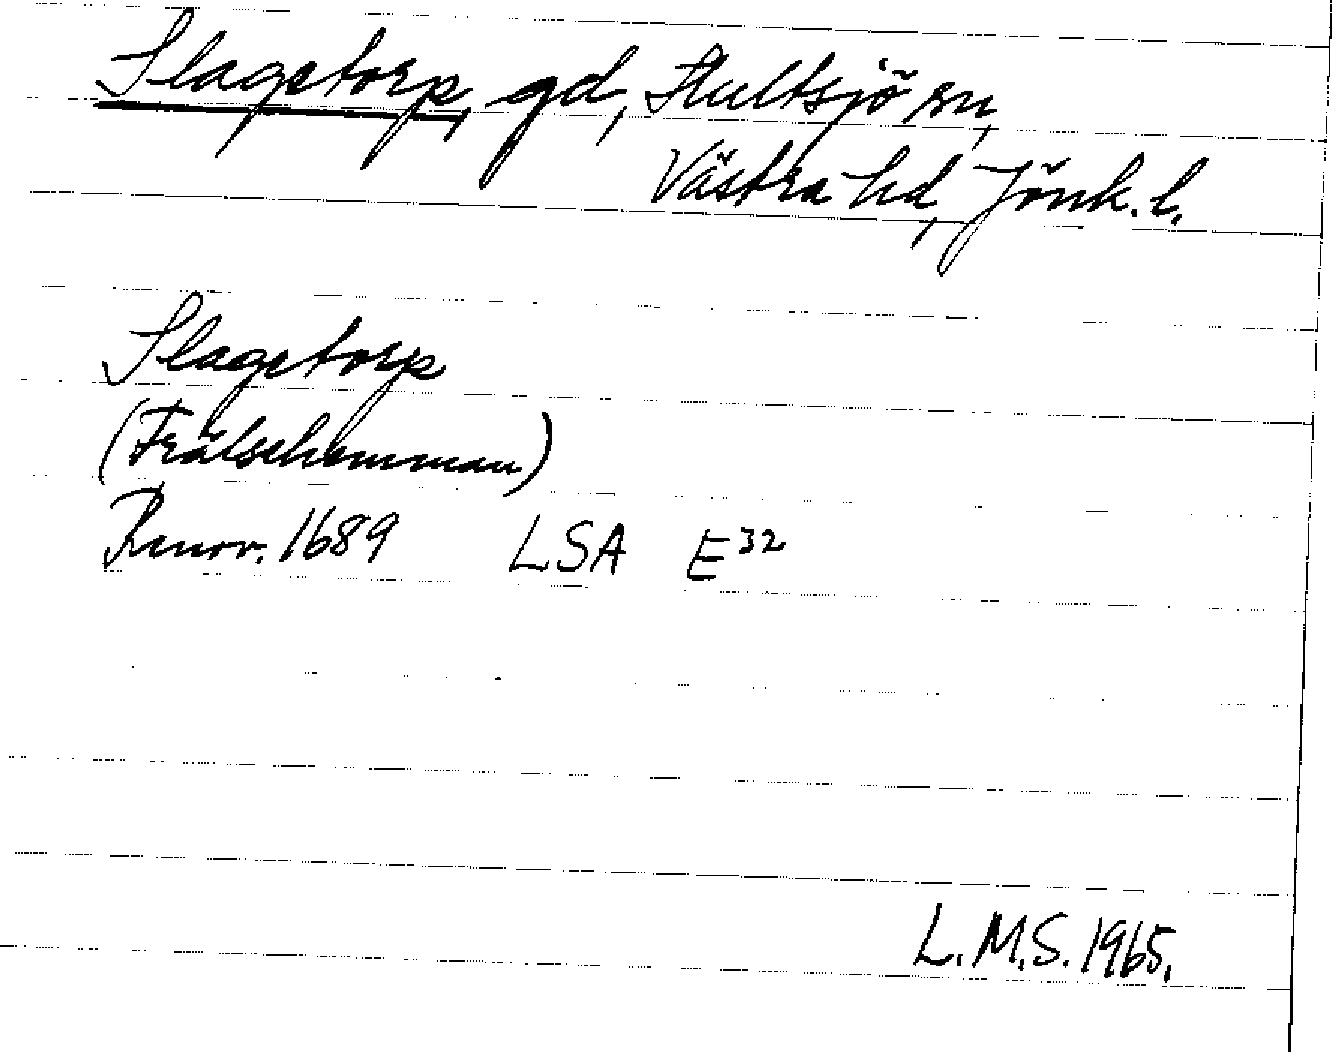 Slagetorp, gd, Hultsjö sn,
Västra hd, Jönk. l.
Slagetorp
(Frälsehemman)
Renov. 1689 LSA E³²
L.M.S. 1965.